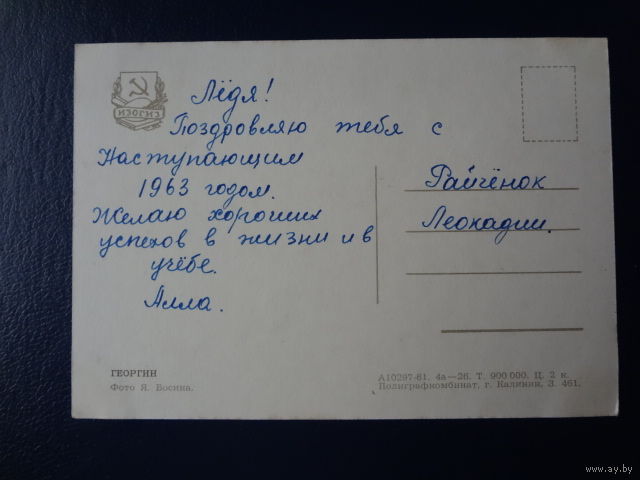 ИЗОГИЗ
Лёдя!
Поздровляю тебя с
Наступающим
1963 годом.
Желаю хороших
успехов в жизни и в
учёбе.
Алла.
Райчёнок
Леокадии.
ГЕОРГИН
Фото Я. Босина.
А10297-61. 4а—26. Т. 900 000. Ц. 2 к.
Полиграфкомбинат, г. Калинин, З. 461.
www.ay.by